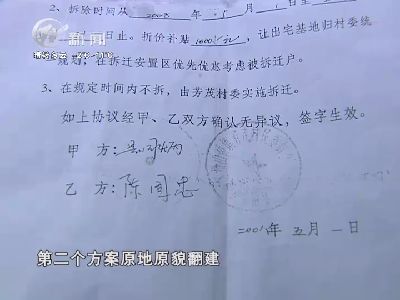 2、拆除时间从2008年 月1日至
日止。拆价补贴1000元，让出宅基地归村委统
规划，在拆迁安置区优先优惠考虑被拆迁户。
3、在规定时间内不拆，由芳茂村委实施拆迁。
如上协议经甲、乙双方确认无异议，签字生效。
甲 方：
乙 方：陈国忠
2001年五月一日
新闻
第二个方案原地原貌翻建